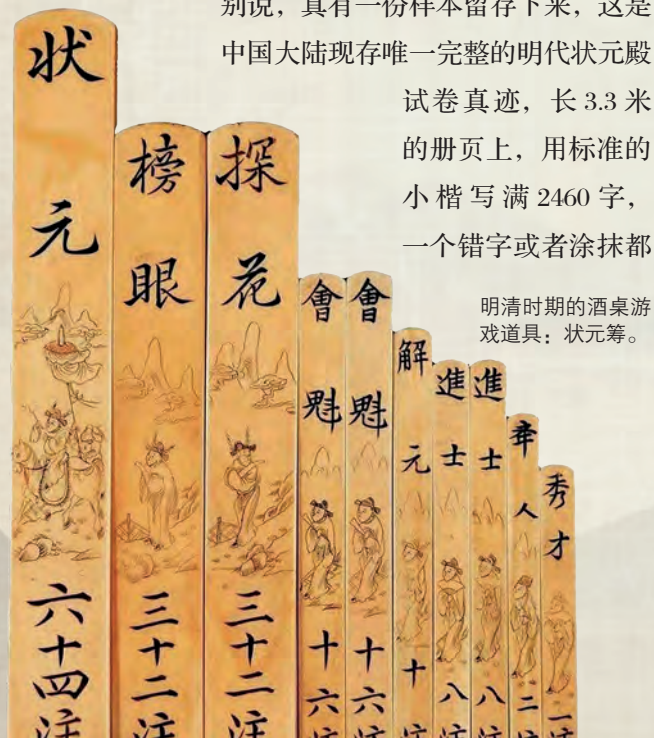 别说，真有一份样本留存下来，这是
中国大陆现存唯一完整的明代状元殿
试卷真迹，长 3.3 米
的册页上，用标准的
小楷写满 2460 字，
一个错字或者涂抹都
明清时期的酒桌游
戏道具：状元筹。
状元
六十四注
榜眼
三十二注
探花
三十二注
會魁
十六注
會魁
十六注
解元
十注
進士
八注
進士
八注
举人
二注
秀才
一注